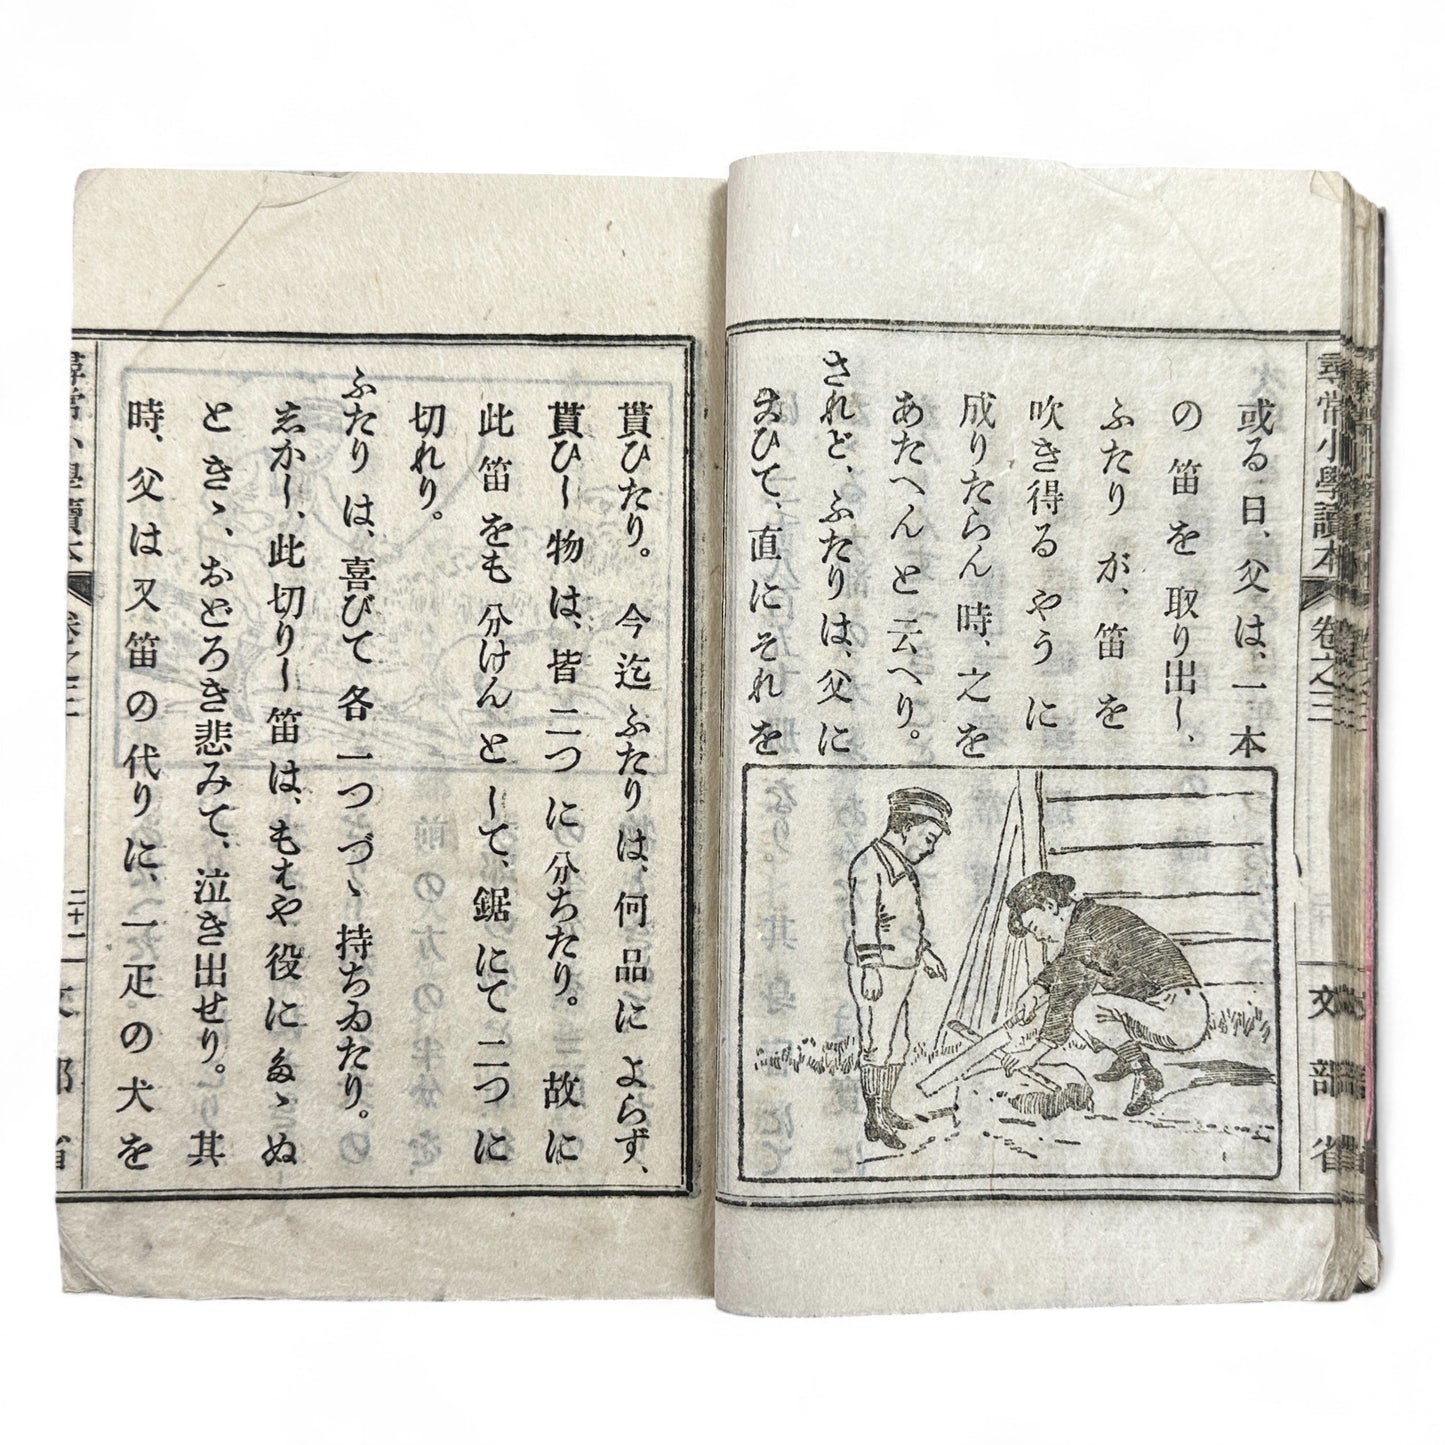 尋常小學讀本 卷之三 文部省
或る日、父は、一本
の笛を取り出し、
ふたりが、笛を
吹き得るやうに
成りたらん時、之を
あたへんと云へり。
されど、ふたりは、父に
直にそれを
貰ひたり。今迄ふたりは、何品によらず、
貰ひし物は、皆二つに分ちたり。故に
此笛をも分けんとして、鋸にて二つに
切れり。
ふたりは、喜びて各一つづゝ持ちゐたり。
志かし、此切りし笛は、もはや役にたゝぬ
ときゝ、おどろき悲みて、泣き出せり。其
時、父は又笛の代りに、一疋の犬を
尋常小學讀本 卷之三 二十一 文部省